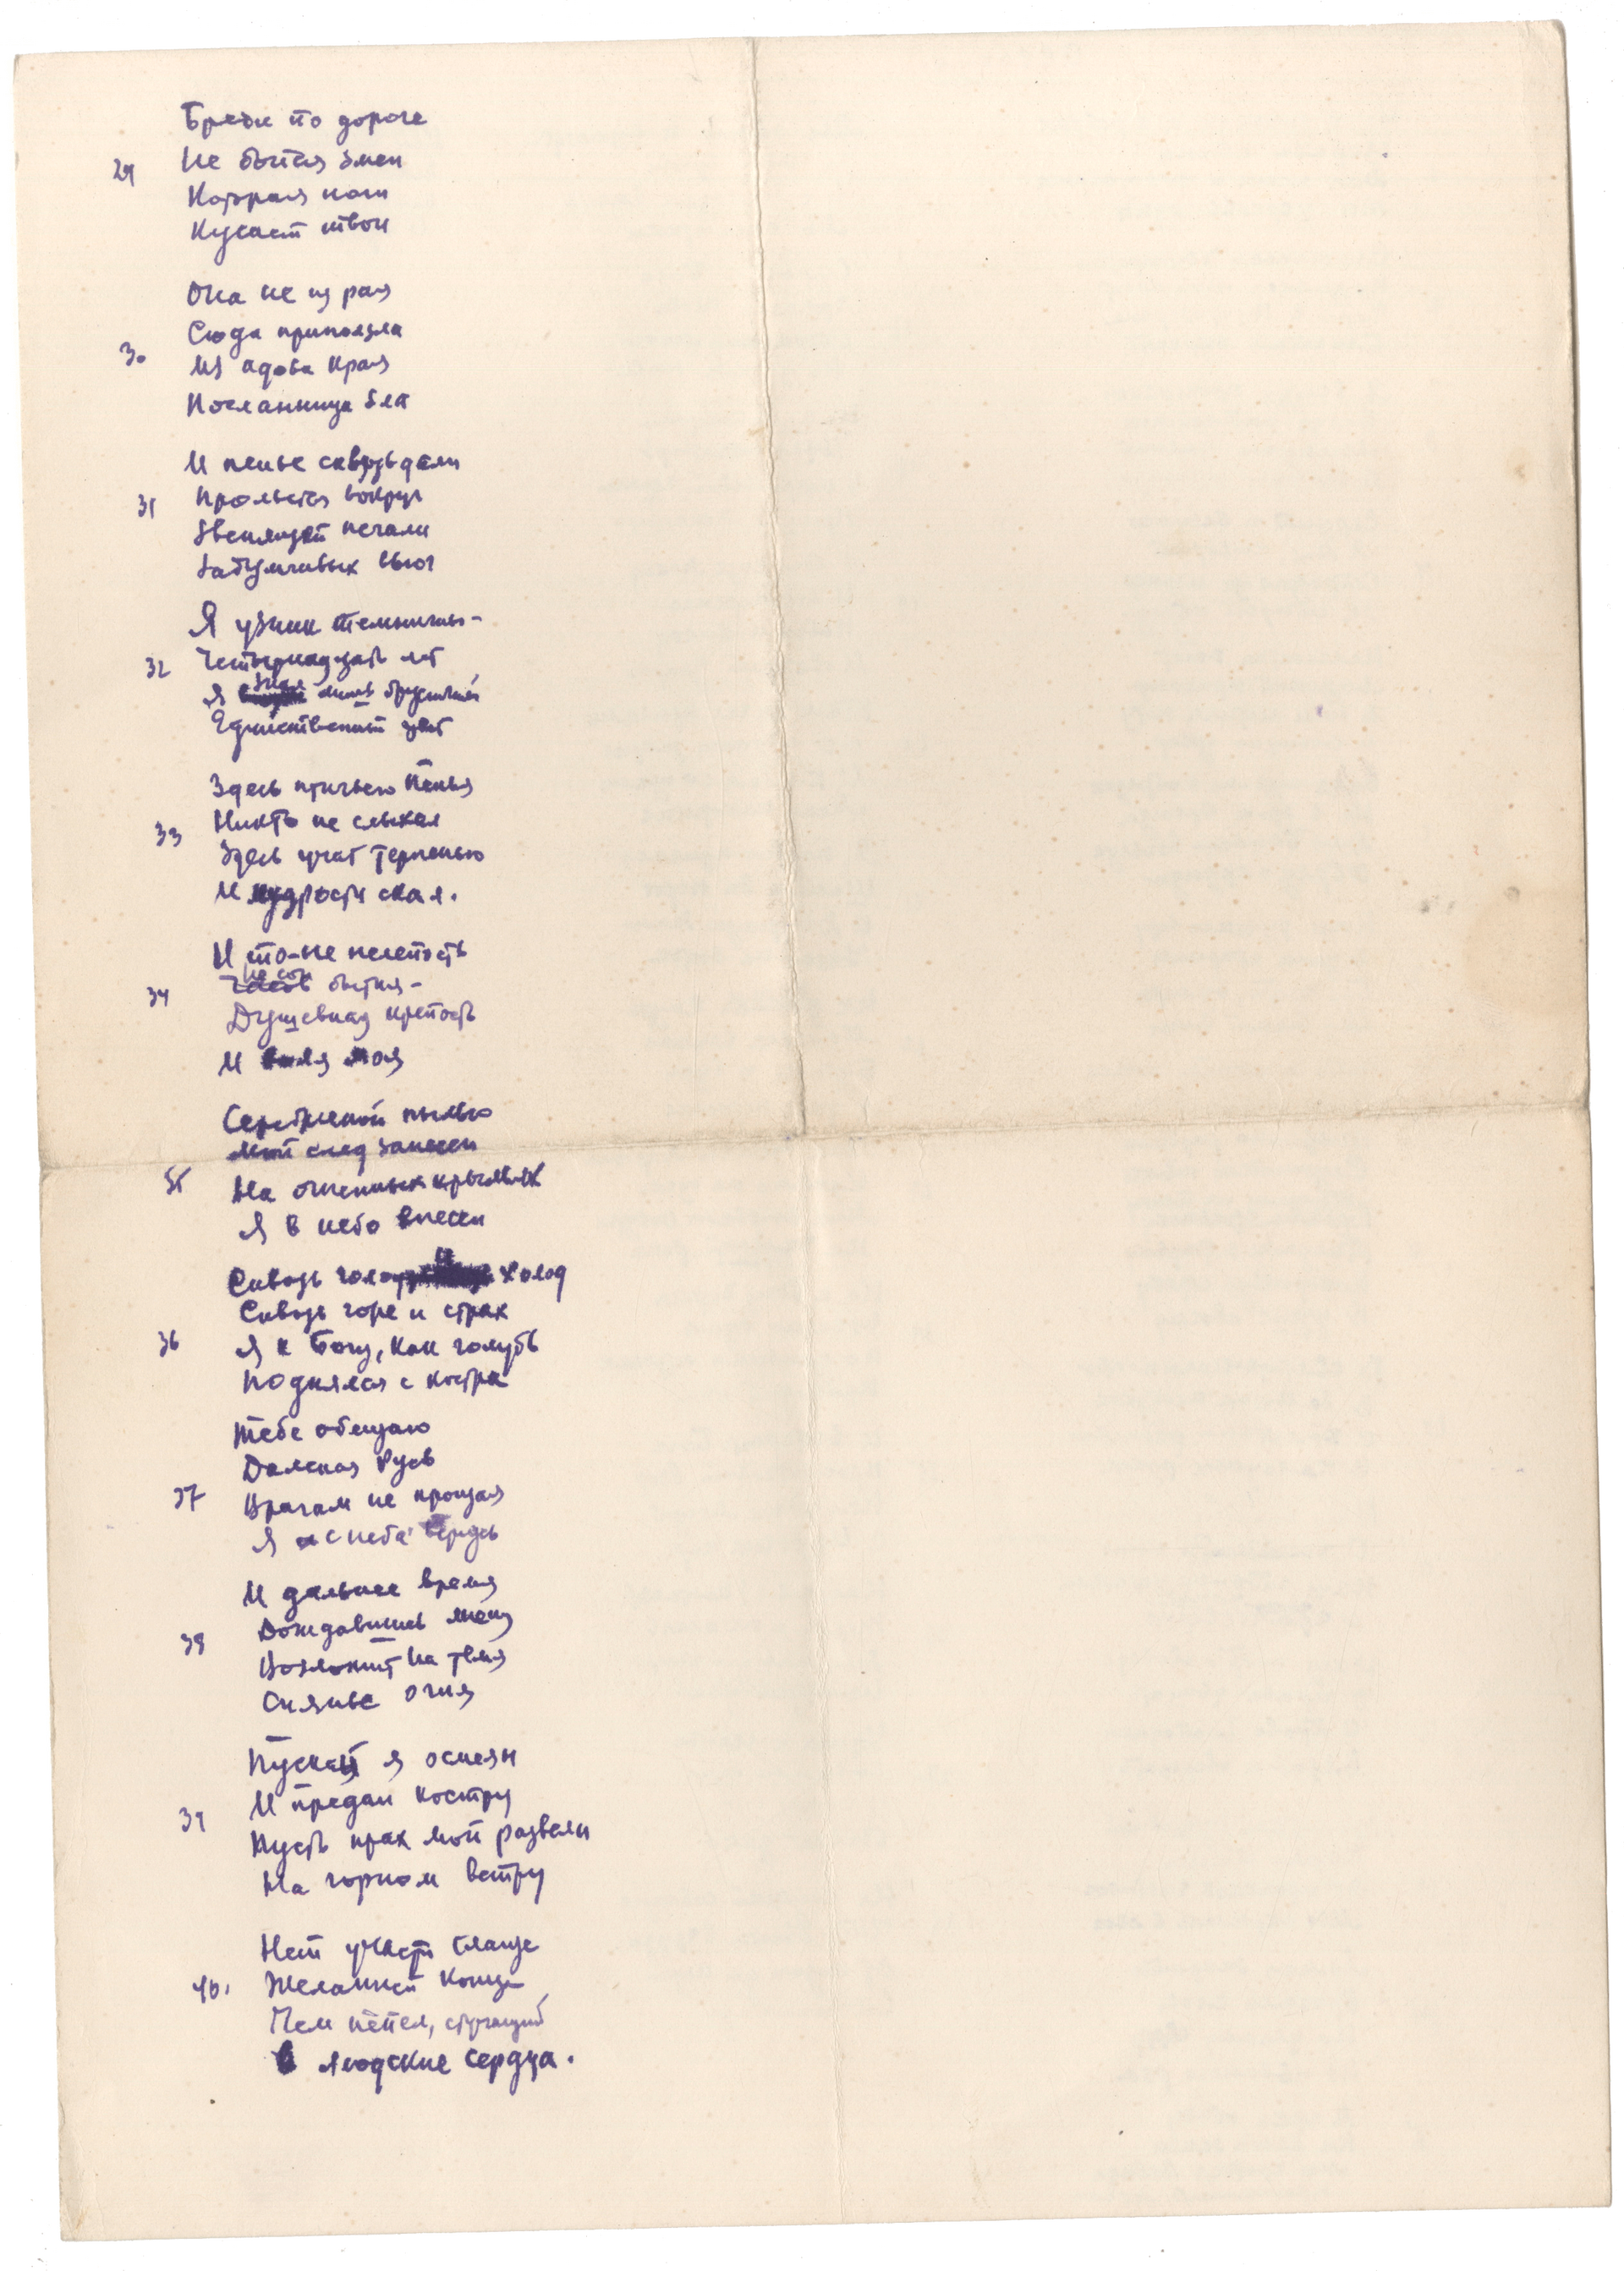 Бреди по дороге
29 Не бойся змеи
Которая ноги
Кусает твои
Она не из рая
Сюда приползла
30 Из адова края
Посланница зла
И пенье сквозь дали
31 Прольется вокруг
Звенящей печали
Забывчивых вьюг
Я узник темницы -
32 Четырнадцать лет
Я знал лишь брусничный
Единственный цвет
Здесь птичьего пенья
33 Никто не слыхал
Здесь учат терпенью
И мудрости скал.
И то-не нелепость
не сон
34 бытия -
Душевная крепость
И воля моя
Серебряной пылью
Мой след занесен
35 На огненных крыльях
Я в небо внесен
Сквозь голод и холод
Сквозь горе и страх
36 Я к Богу, как голубь
Поднялся с костра
Тебе обещаю
Далекая Русь
37 Врагам не прощая
Я с неба вернусь
И дальнее время
38 Дождавшись меня
Возложит на темя
Сиянье огня
Пускай я осмеян
39 И предан костру
Пусть прах мой развеян
На горном ветру
Нет участи слаще
40. Желанней конца
Чем пепел, стучащий
В людские сердца.